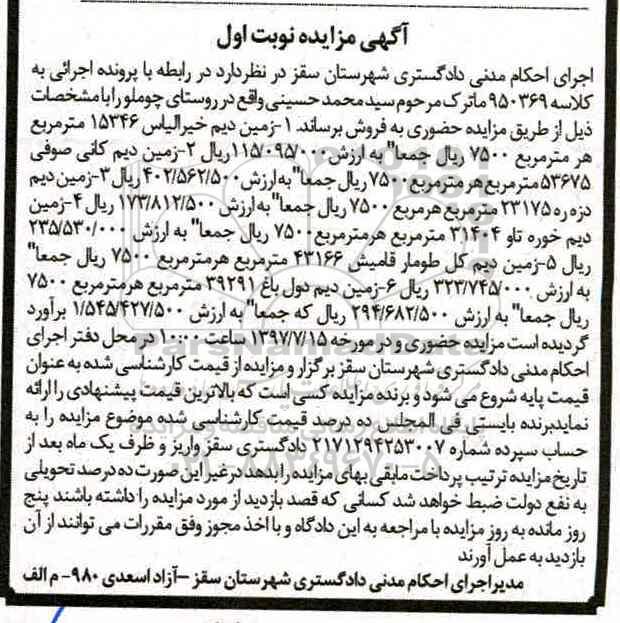 آگهی مزایده نوبت اول
اجرای احکام مدنی دادگستری شهرستان سقز در نظر دارد در رابطه با پرونده اجرائی به
کلاسه ۹۵۰۳۶۹ ماترک مرحوم سید محمد حسینی واقع در روستای چوملو را با مشخصات
ذیل از طریق مزایده حضوری به فروش برساند. ۱-زمین دیم خیرالیاس ۱۵۳۴۶ مترمربع
هر مترمربع ۷۵۰۰ ریال جمعا" به ارزش ۱۱۵/۰۹۵/۰۰۰ ریال ۲-زمین دیم کانی صوفی
۵۳۶۷۵ مترمربع هر مترمربع ۷۵۰۰ ریال جمعا" به ارزش ۴۰۲/۵۶۲/۵۰۰ ریال ۳-زمین دیم
دزه ره ۲۳۱۷۵ مترمربع هرمربع ۷۵۰۰ ریال جمعا" به ارزش ۱۷۳/۸۱۲/۵۰۰ ریال ۴-زمین
دیم خوره تاو ۳۱۴۰۴ مترمربع هرمترمربع ۷۵۰۰ ریال جمعا" به ارزش ۲۳۵/۵۳۰/۰۰۰
ریال ۵-زمین دیم کل طومار قامیش ۴۳۱۶۶ مترمربع هرمترمربع ۷۵۰۰ ریال جمعا"
به ارزش ۳۲۳/۷۴۵/۰۰۰ ریال ۶-زمین دیم دول باغ ۳۹۲۹۱ مترمربع هرمترمربع ۷۵۰۰
ریال جمعا" به ارزش ۲۹۴/۶۸۲/۵۰۰ ریال که جمعا" به ارزش ۱/۵۴۵/۴۲۷/۵۰۰ برآورد
گردیده است مزایده حضوری و در مورخه ۱۳۹۷/۷/۱۵ ساعت ۱۰:۰۰ در محل دفتر اجرای
احکام مدنی دادگستری شهرستان سقز برگزار و مزایده از قیمت کارشناسی شده به عنوان
قیمت پایه شروع می شود و برنده مزایده کسی است که بالاترین قیمت پیشنهادی را ارائه
نماید برنده بایستی فی المجلس ده درصد قیمت کارشناسی شده موضوع مزایده را به
حساب سپرده شماره ۲۱۷۱۲۹۴۲۵۳۰۰۷ دادگستری سقز واریز و ظرف یک ماه بعد از
تاریخ مزایده ترتیب پرداخت مابقی بهای مزایده را بدهد در غیر این صورت ده درصد تحویلی
به نفع دولت ضبط خواهد شد کسانی که قصد بازدید از مورد مزایده را داشته باشند پنج
روز مانده به روز مزایده با مراجعه به این دادگاه و با اخذ مجوز وفق مقررات می توانند از آن
بازدید به عمل آورند
مدیر اجرای احکام مدنی دادگستری شهرستان سقز –آزاد اسعدی ۹۸۰- م الف
ParsNamadData